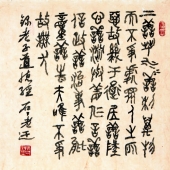 上善若水善利萬物
而不爭處眾人之所
惡故幾于道居善地
心善淵與善仁言善
信政善治事善能
動善時夫唯不爭
故無尤
老子道德經